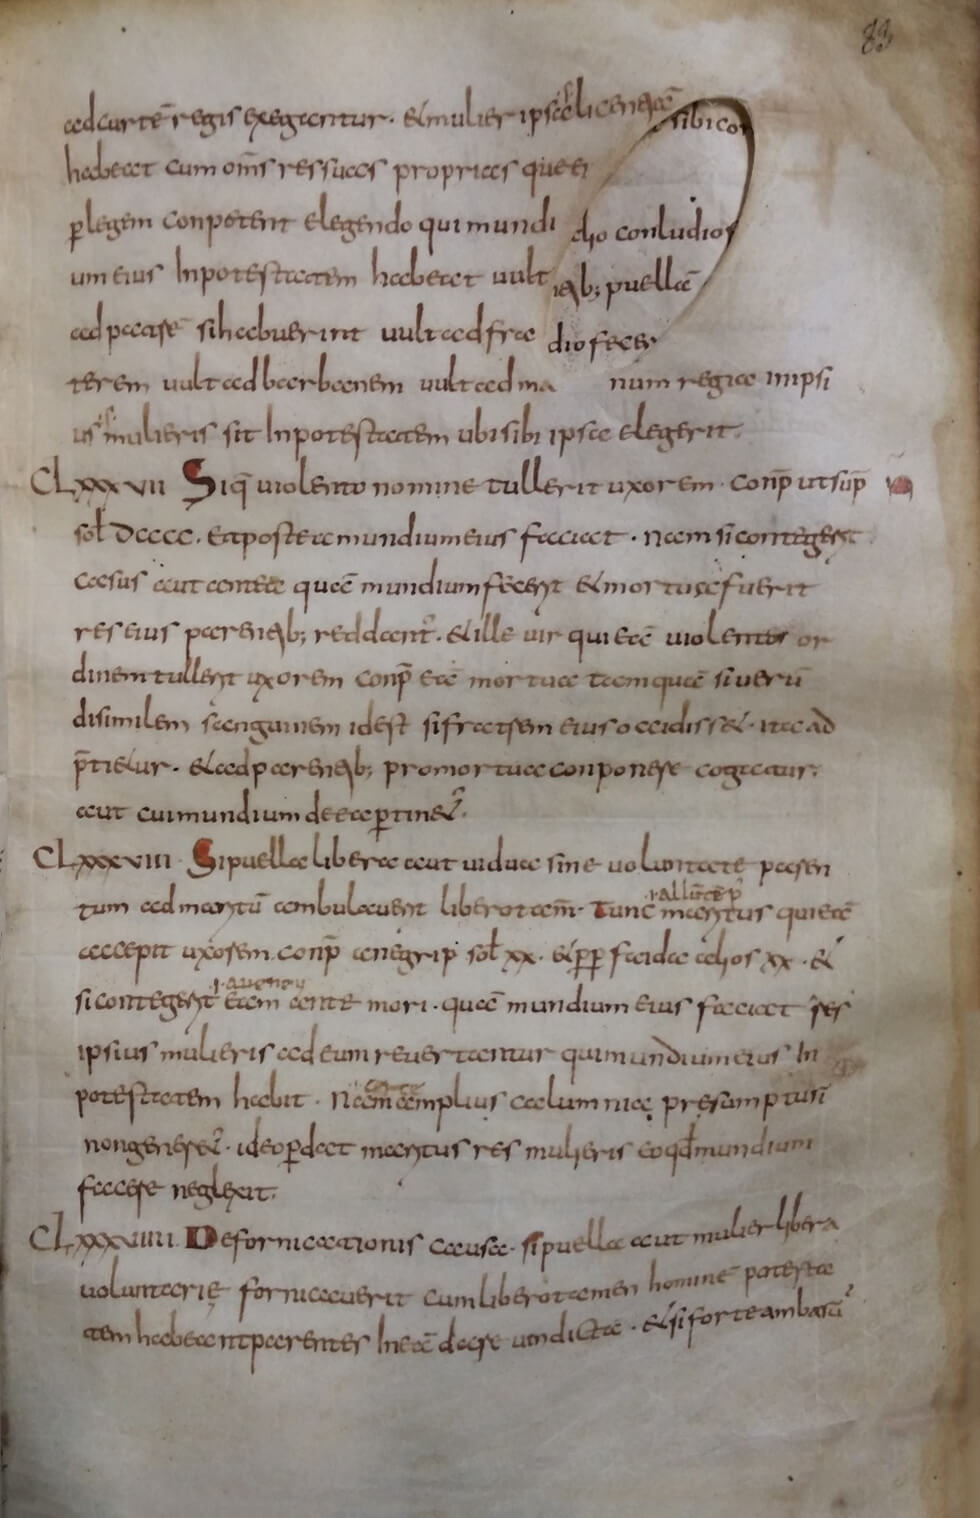 83
adcurtē regis exegantur. & mulier ipsa licentiā sibi con
habeat cum om̄s res suas proprias que ei
p legem conpetent elegendo qui mundi
um eius In potestatem habeat uult
ad patrē si habuerint uult ad fra
trem uult ad barbanem uult ad ma num regiae in ipsi
dio conludios
iab; puellā
dio fecer
us mulieris sit In potestatem ubi sibi ipsa elegerit.
CLXXXVII Siq̄ uiolento nomine tullerit uxorem. conp̄ ut sup̄
sol DCCCC. et postea mundium eius faciat. Nam si contegerit
casus aut antea quā mundium fecerit & mortua fuerit
res eius parentib; reddant̄. & ille uir qui eā uiolento or
dinem tullerit uxorem conp̄ eā mortua tamquā si uerū
disimilem sanguinem id est si fratrem eius occidiss&. ita ad
p̄ti&ur. & ad parentib; pro mortua conponere cogatur.
aut cui mundium de ea ptin&̄.
CLXXXVIII Si puella libera aut uidua sine uoluntate paren
tum ad maritū ambulauerit libero tam̄. Tunc maritus qui eā
accepit uxorem conp̄ anagrip sol xx. & pp faida alios xx. &
si contegerit eam ante mori. quā mundium eius faciat res
ipsius mulieris ad eum reuertantur qui mundium eius In
potestatem habit. Nam amplius calumnia presumptusi
non gener&̄. ideo pdat maritus res mulieris eo qd mundium
facere neglexit.
CLXXXVIIII De fornicationis causa. si puella aut mulier libera
uoluntariæ fornicauerit cum libero tamen homine potesta
tem habeant parentes In eā dare uindicta. & si forte ambarū